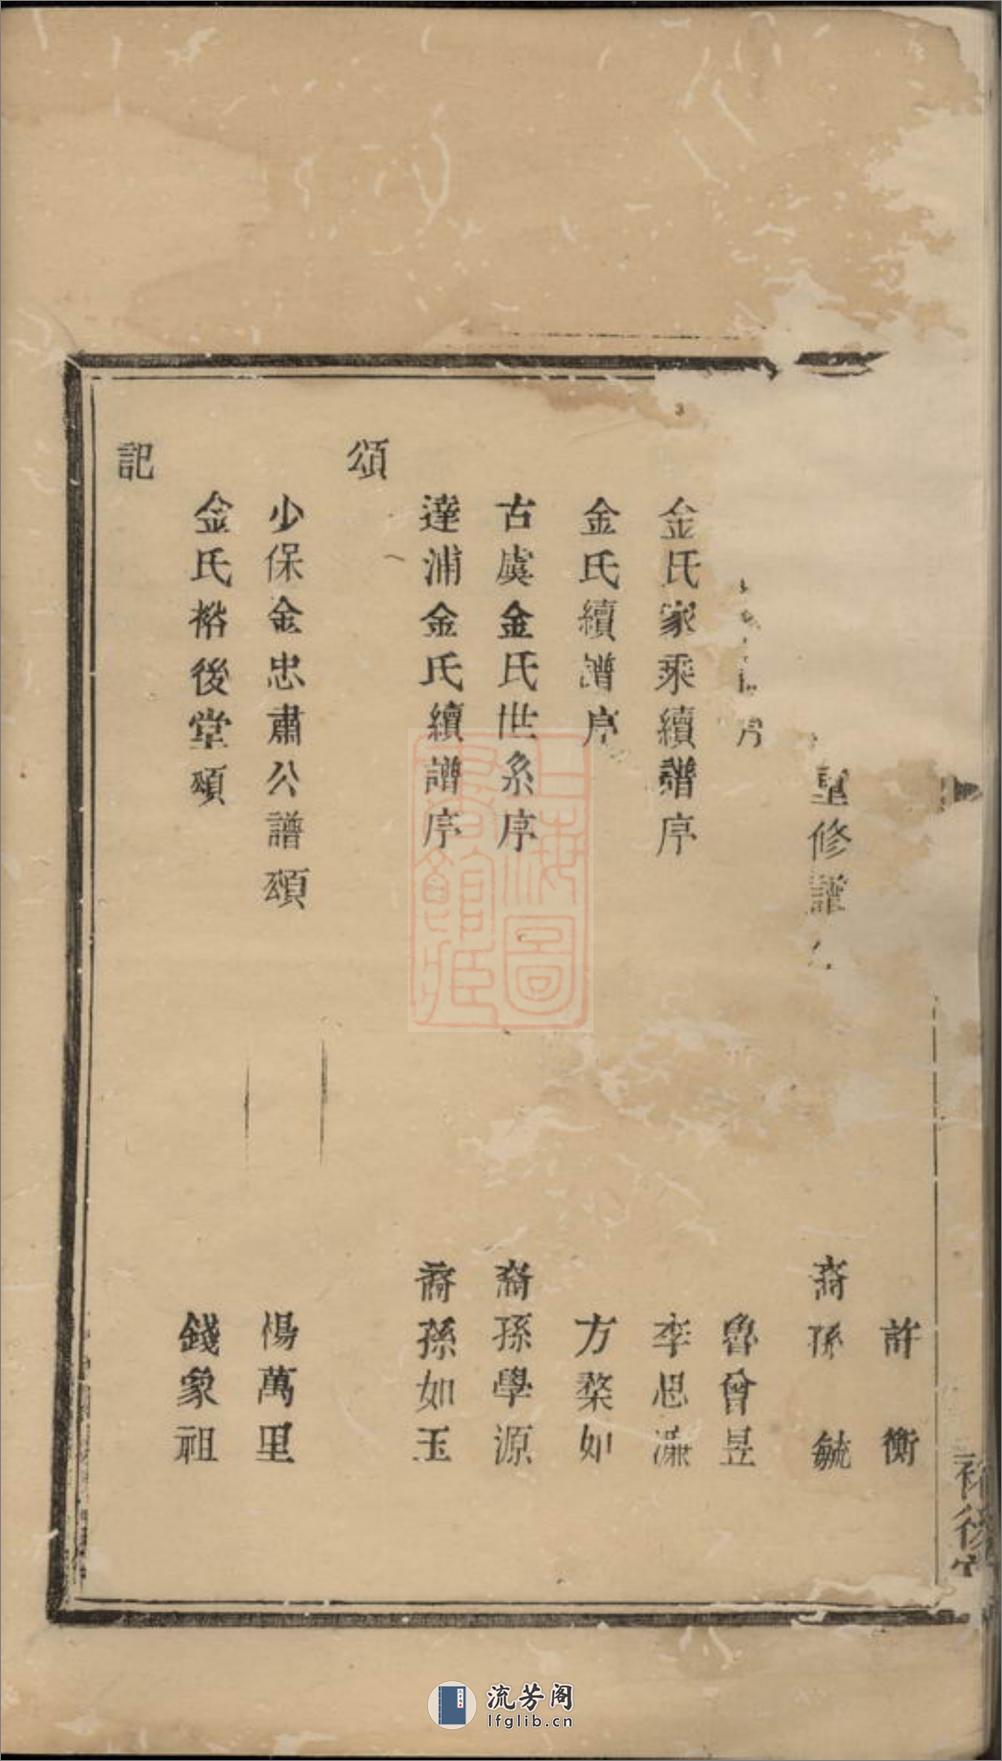 許衡
修譜
裔孫 毓
魯曾昱
金氏家乘續譜序 李思濂
金氏續譜序 方楘如
古虞金氏世系序 裔孫學源
達浦金氏續譜序 裔孫如玉
頌
少保金忠肅公譜頌 楊萬里
金氏裕後堂頌 錢象祖
記
裕後堂
上海圖書館藏
流芳阁
lfglib.cn